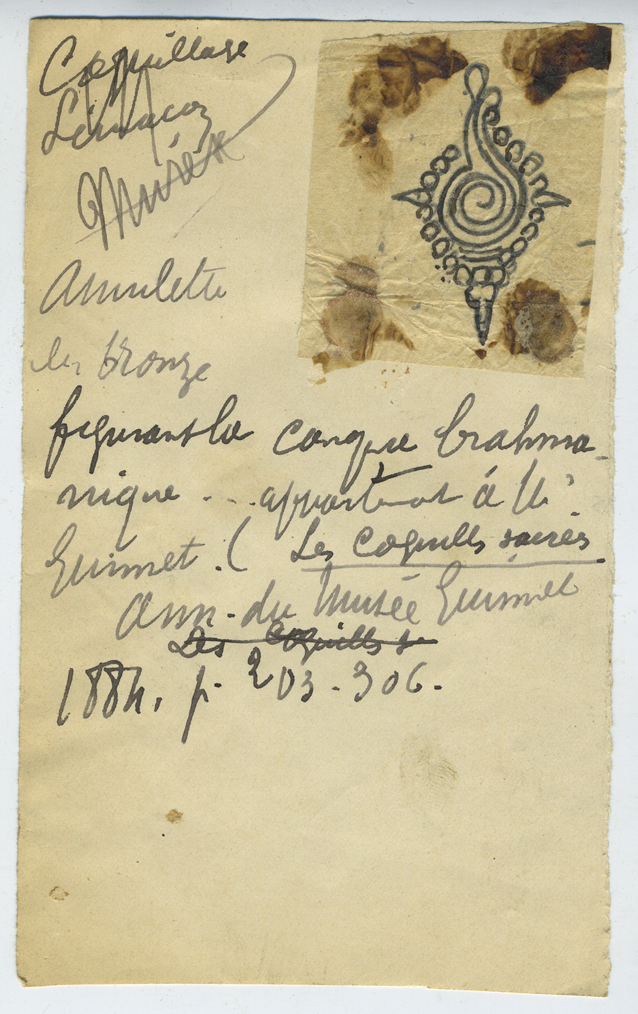 Coquillage
Limaçon
Murex
Amulette
en bronze
figurant la conque brahma-
nique ... appartenant à M.
Guimet. ( Les Coquilles sacrées
Ann. du Musée Guimet
Les Coquilles s
1884. p. 203-306.